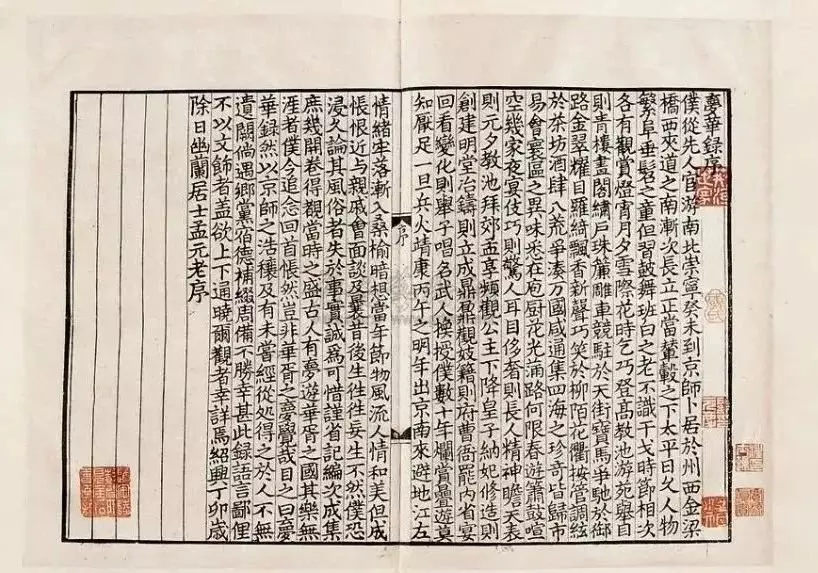 夢華録序
僕從先人宦游南北崇寧癸未到京師卜居於州西金梁
橋西夾道之南漸次長立正當輦轂之下太平日久人物
繁阜垂髫之童但習鼓舞班白之老不識干戈時節相次
各有觀賞燈宵月夕雪際花時乞巧登高教池游苑舉目
則青樓畫閣繡戶珠簾雕車競駐於天街寶馬爭馳於御
路金翠耀目羅綺飄香新聲巧笑於柳陌花衢按管調絃
於茶坊酒肆八荒爭湊萬國咸通集四海之珍奇皆歸市
易會寰區之異味悉在庖厨花光滿路何限春遊簫鼓喧
空幾家夜宴伎巧則驚人耳目侈奢則長人精神瞻天表
則元夕教池拜郊孟享頻觀公主下降皇子納妃修造則
創建明堂冶鑄則立成鼎鼐觀妓籍則府曹衙罷內省宴
回看變化則舉子唱名武人換授僕數十年爛賞疊遊莫
知厭足一旦兵火靖康丙午之明年出京南來避地江左
序
情緒牢落漸入桑榆暗想當年節物風流人情和美但成
悵恨近與親戚會面談及曩昔後生往往妄生不然僕恐
浸久論其風俗者失於事實誠為可惜謹省記編次成集
庶幾開卷得覩當時之盛古人有夢遊華胥之國其樂無
涯者僕今追念回首悵然豈非華胥之夢覺哉目之曰夢
華録然以京師之浩穰及有未嘗經從處得之於人不無
遺闕倘遇鄉黨宿德補綴周備不勝幸甚此録語言鄙俚
不以文飾者蓋欲上下通曉爾觀者幸詳焉紹興丁卯歲
除日幽蘭居士孟元老序